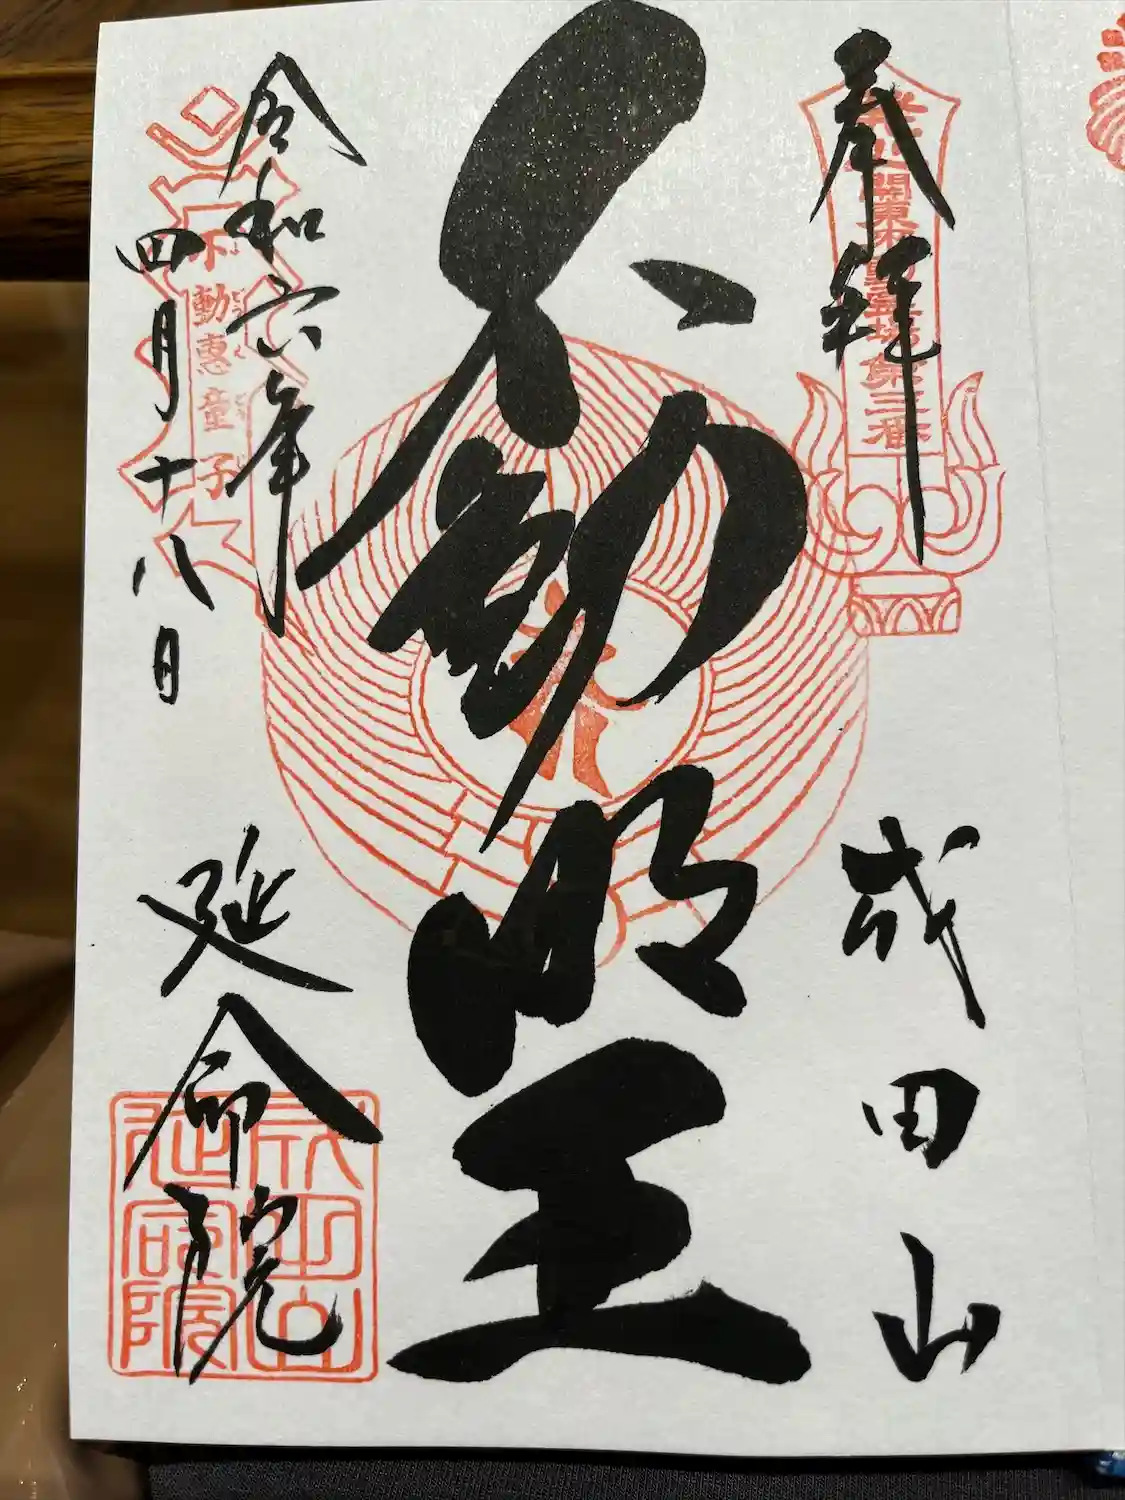 奉拝
成田山
関東不動霊場第三番
不動明王
令和六年
四月十八日
不動恵童子
延命院
成田山
延命院